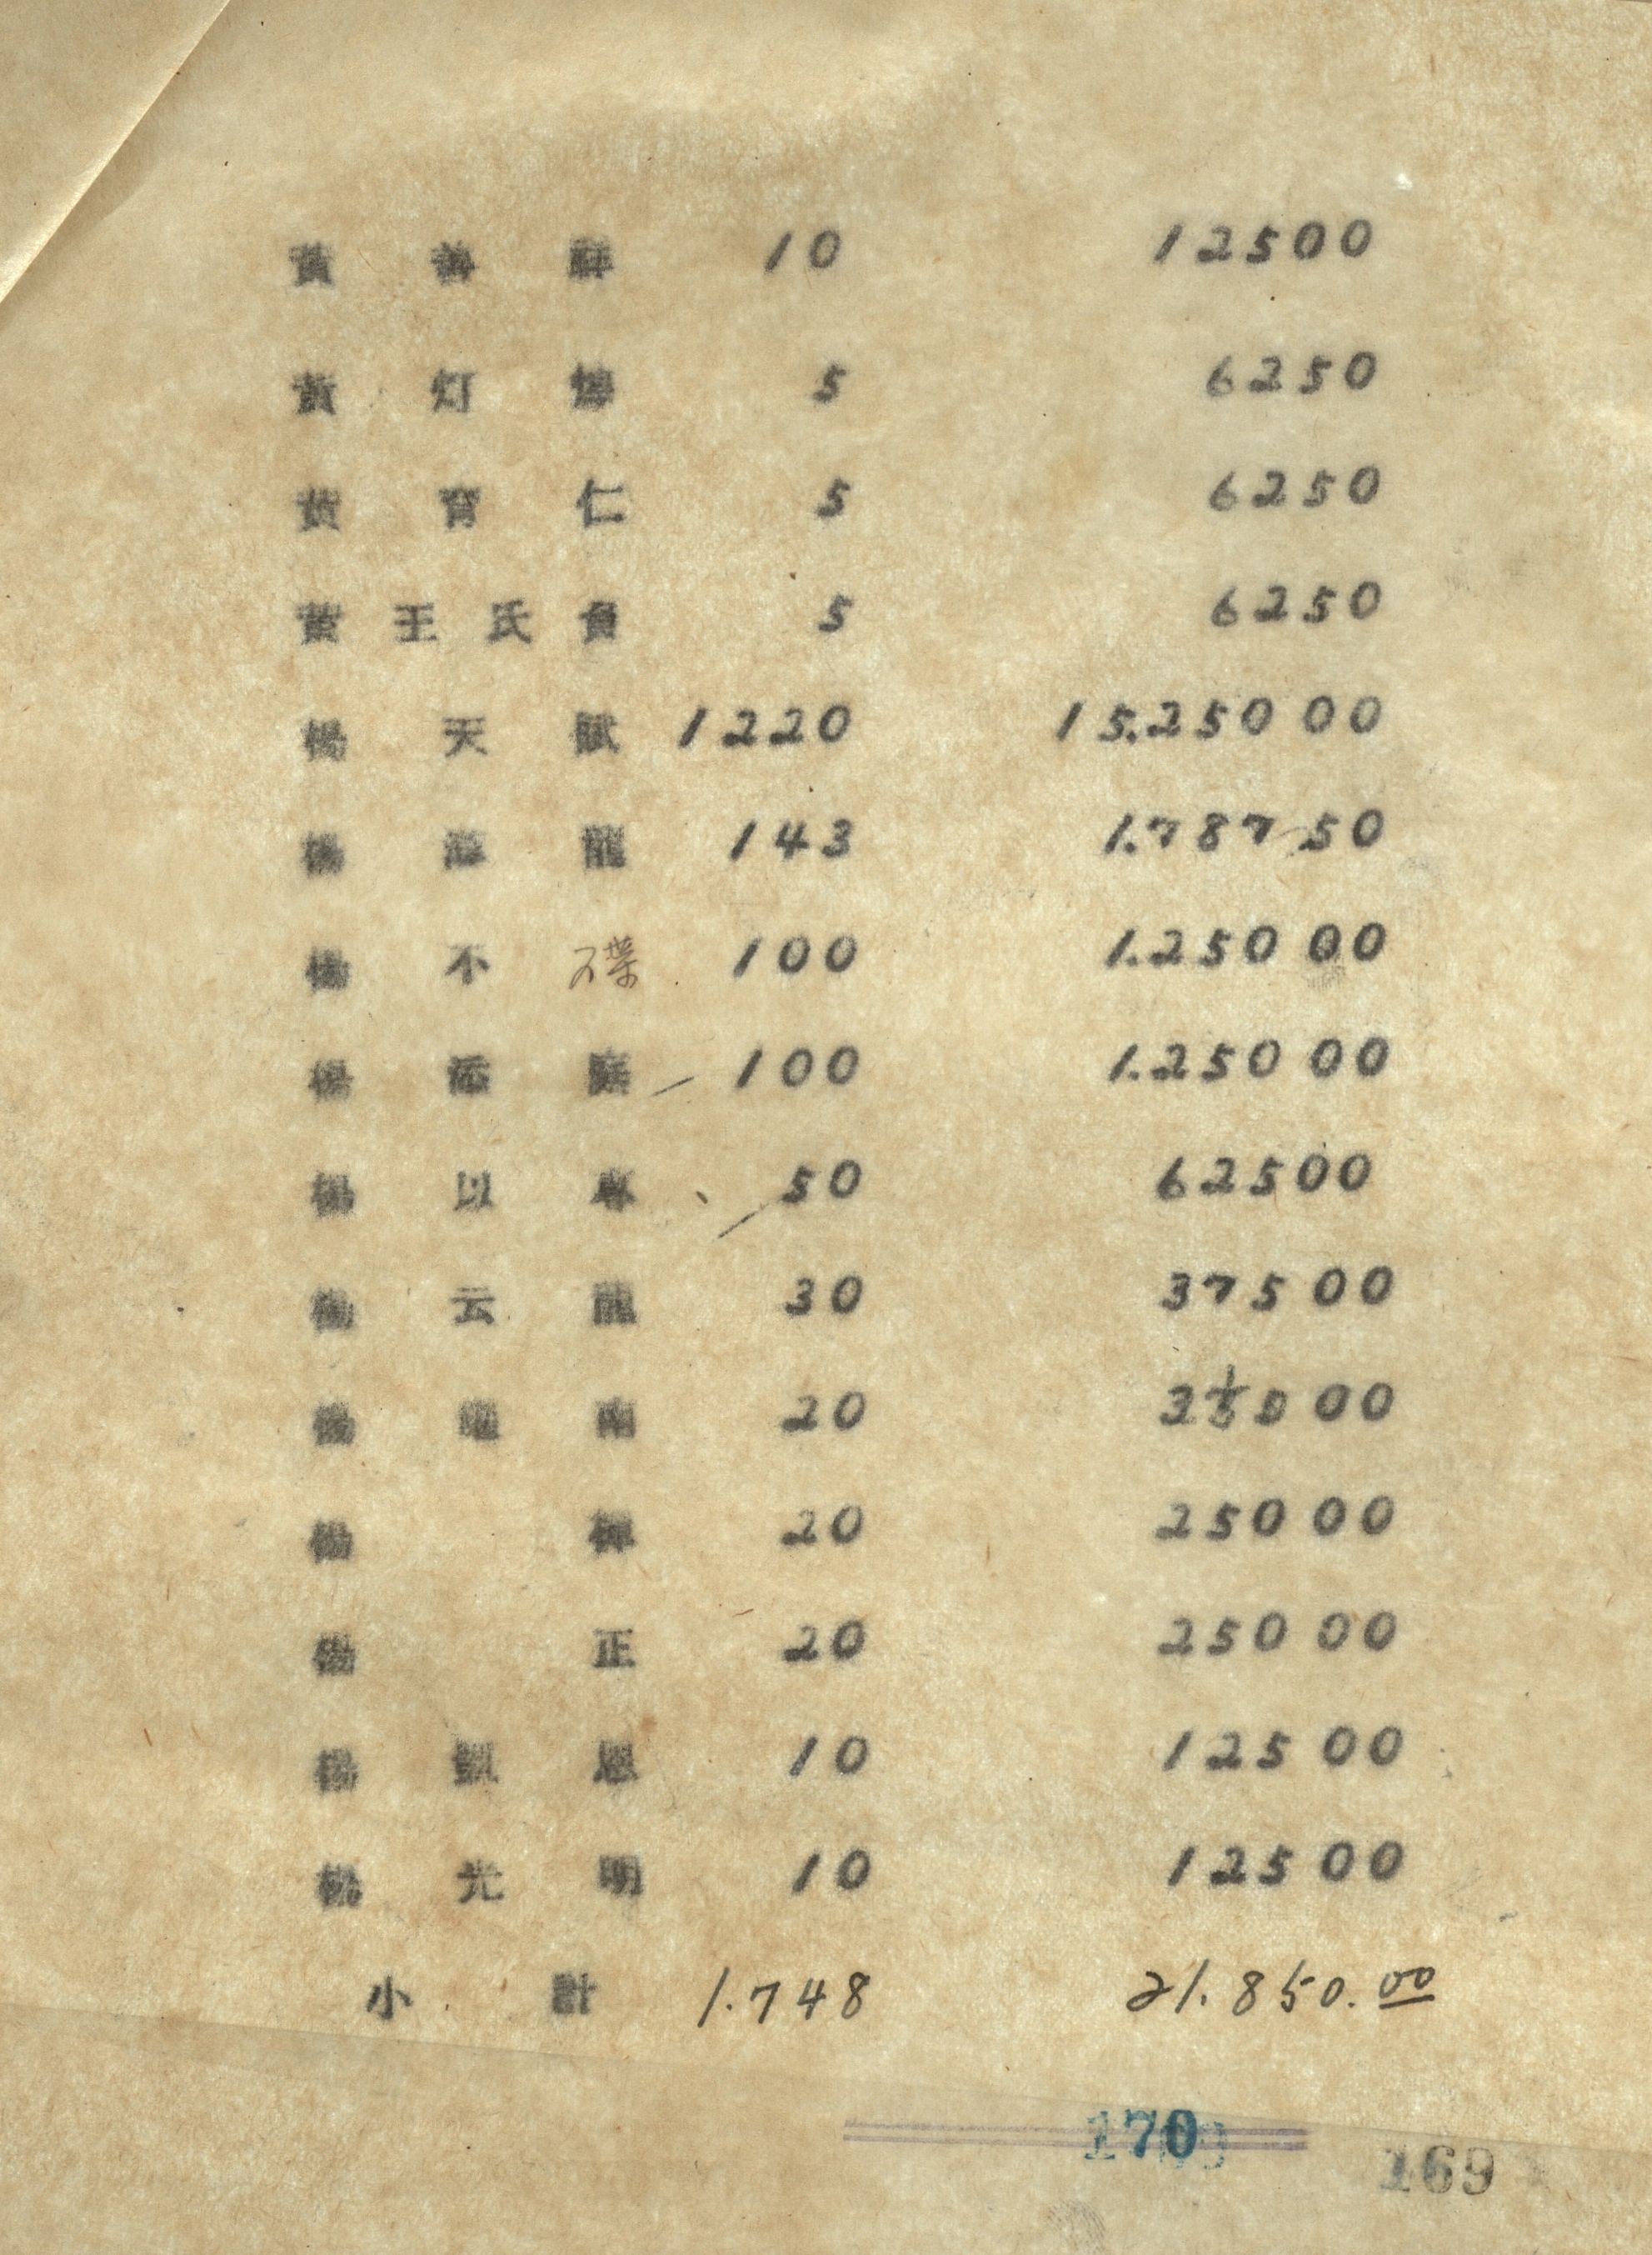 黃 10 12500
黃 灯 5 6250
黃 仁 5 6250
黃 王 氏 5 6250
楊 天 賦 1220 15.250 00
楊 龍 143 1.787 50
楊 不 碟 100 1.250 00
楊 100 1.250 00
楊 以 50 62500
楊 云 龍 30 375 00
楊 南 20 00
楊 輝 20 250 00
楊 正 20 250 00
楊 恩 10 125 00
楊 光 明 10 125 00
小 計 1.748 21.850.00
170
169